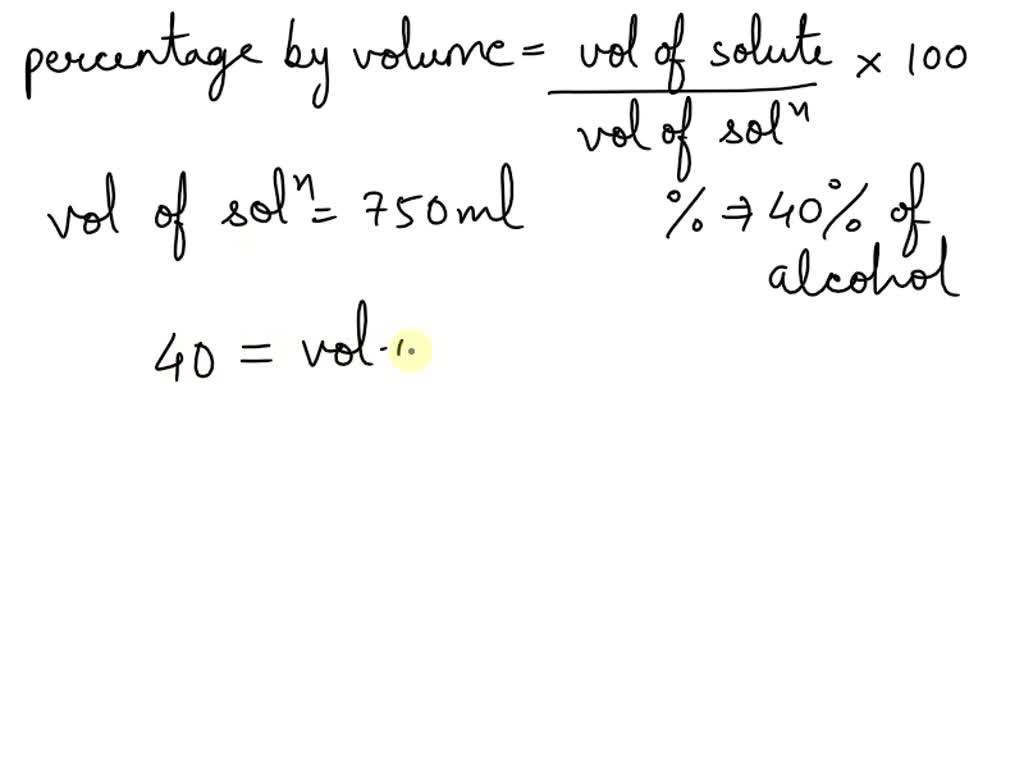 percentage by volume = vol of solute × 100
vol of solⁿ
vol of solⁿ = 750ml % ⇒ 40% of
alcohol
40 = vol.